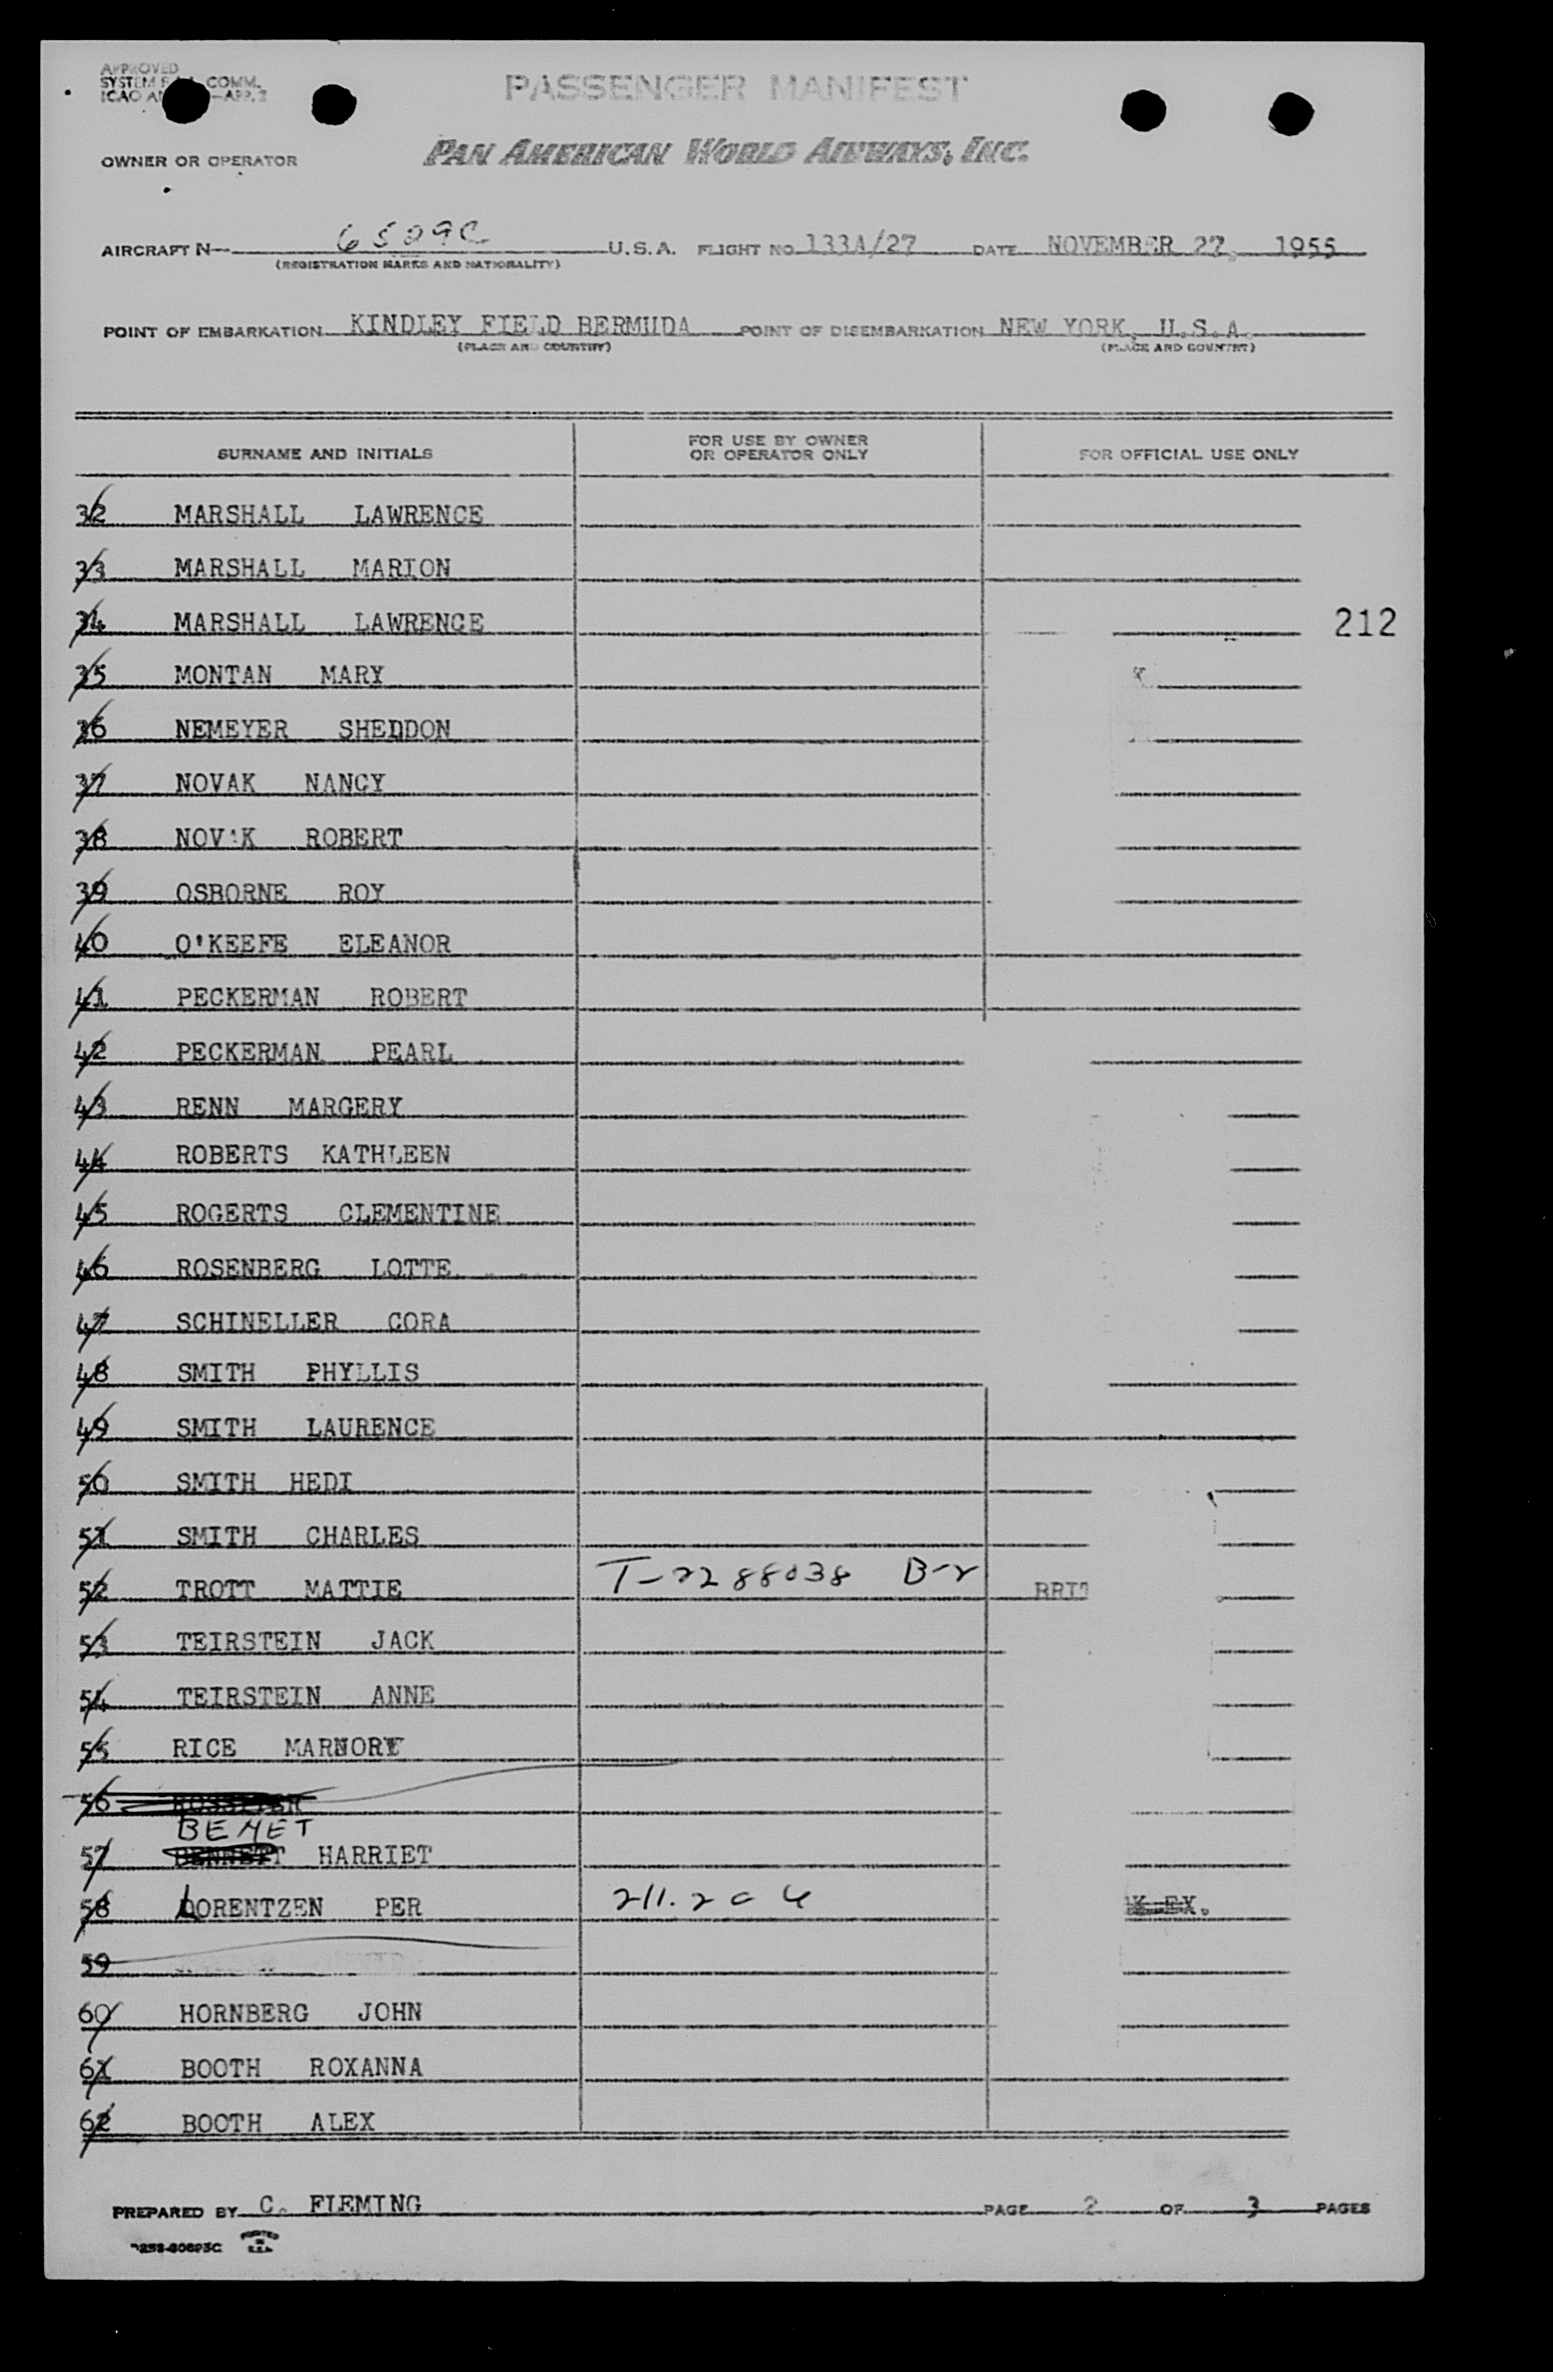 APPROVED PASSENGER MANIFEST
SYSTEM COMM.
ICAO
OWNER OR OPERATOR PAN AMERICAN WORLD AIRWAYS, INC.
AIRCRAFT N- 6509C U.S.A. FLIGHT NO. 133A/27 DATE NOVEMBER 27, 1955
(REGISTRATION MARKS AND NATIONALITY)
POINT OF EMBARKATION KINDLEY FIELD BERMUDA POINT OF DISEMBARKATION NEW YORK, U.S.A.
(PLACE AND COUNTRY) (PLACE AND COUNTRY)
SURNAME AND INITIALS FOR USE BY OWNER OR OPERATOR ONLY FOR OFFICIAL USE ONLY
32 MARSHALL LAWRENCE
33 MARSHALL MARION
34 MARSHALL LAWRENCE 212
35 MONTAN MARY
36 NEMEYER SHEDDON
37 NOVAK NANCY
38 NOVAK ROBERT
39 OSBORNE ROY
40 O'KEEFE ELEANOR
41 PECKERMAN ROBERT
42 PECKERMAN PEARL
43 RENN MARGERY
44 ROBERTS KATHLEEN
45 ROGERTS CLEMENTINE
46 ROSENBERG LOTTE
47 SCHINELLER CORA
48 SMITH PHYLLIS
49 SMITH LAURENCE
50 SMITH HEDI
51 SMITH CHARLES
52 TROTT MATTIE T-2288038 B-2 BRIT
53 TEIRSTEIN JACK
54 TEIRSTEIN ANNE
55 RICE
56
BEMET
57 BENNETT HARRIET
58 LORENTZEN PER EX.
59
60 HORNBERG JOHN
61 BOOTH ROXANNA
62 BOOTH ALEX
PREPARED BY C. FLEMING PAGE 2 OF 3 PAGES
PRINTED IN U.S.A.